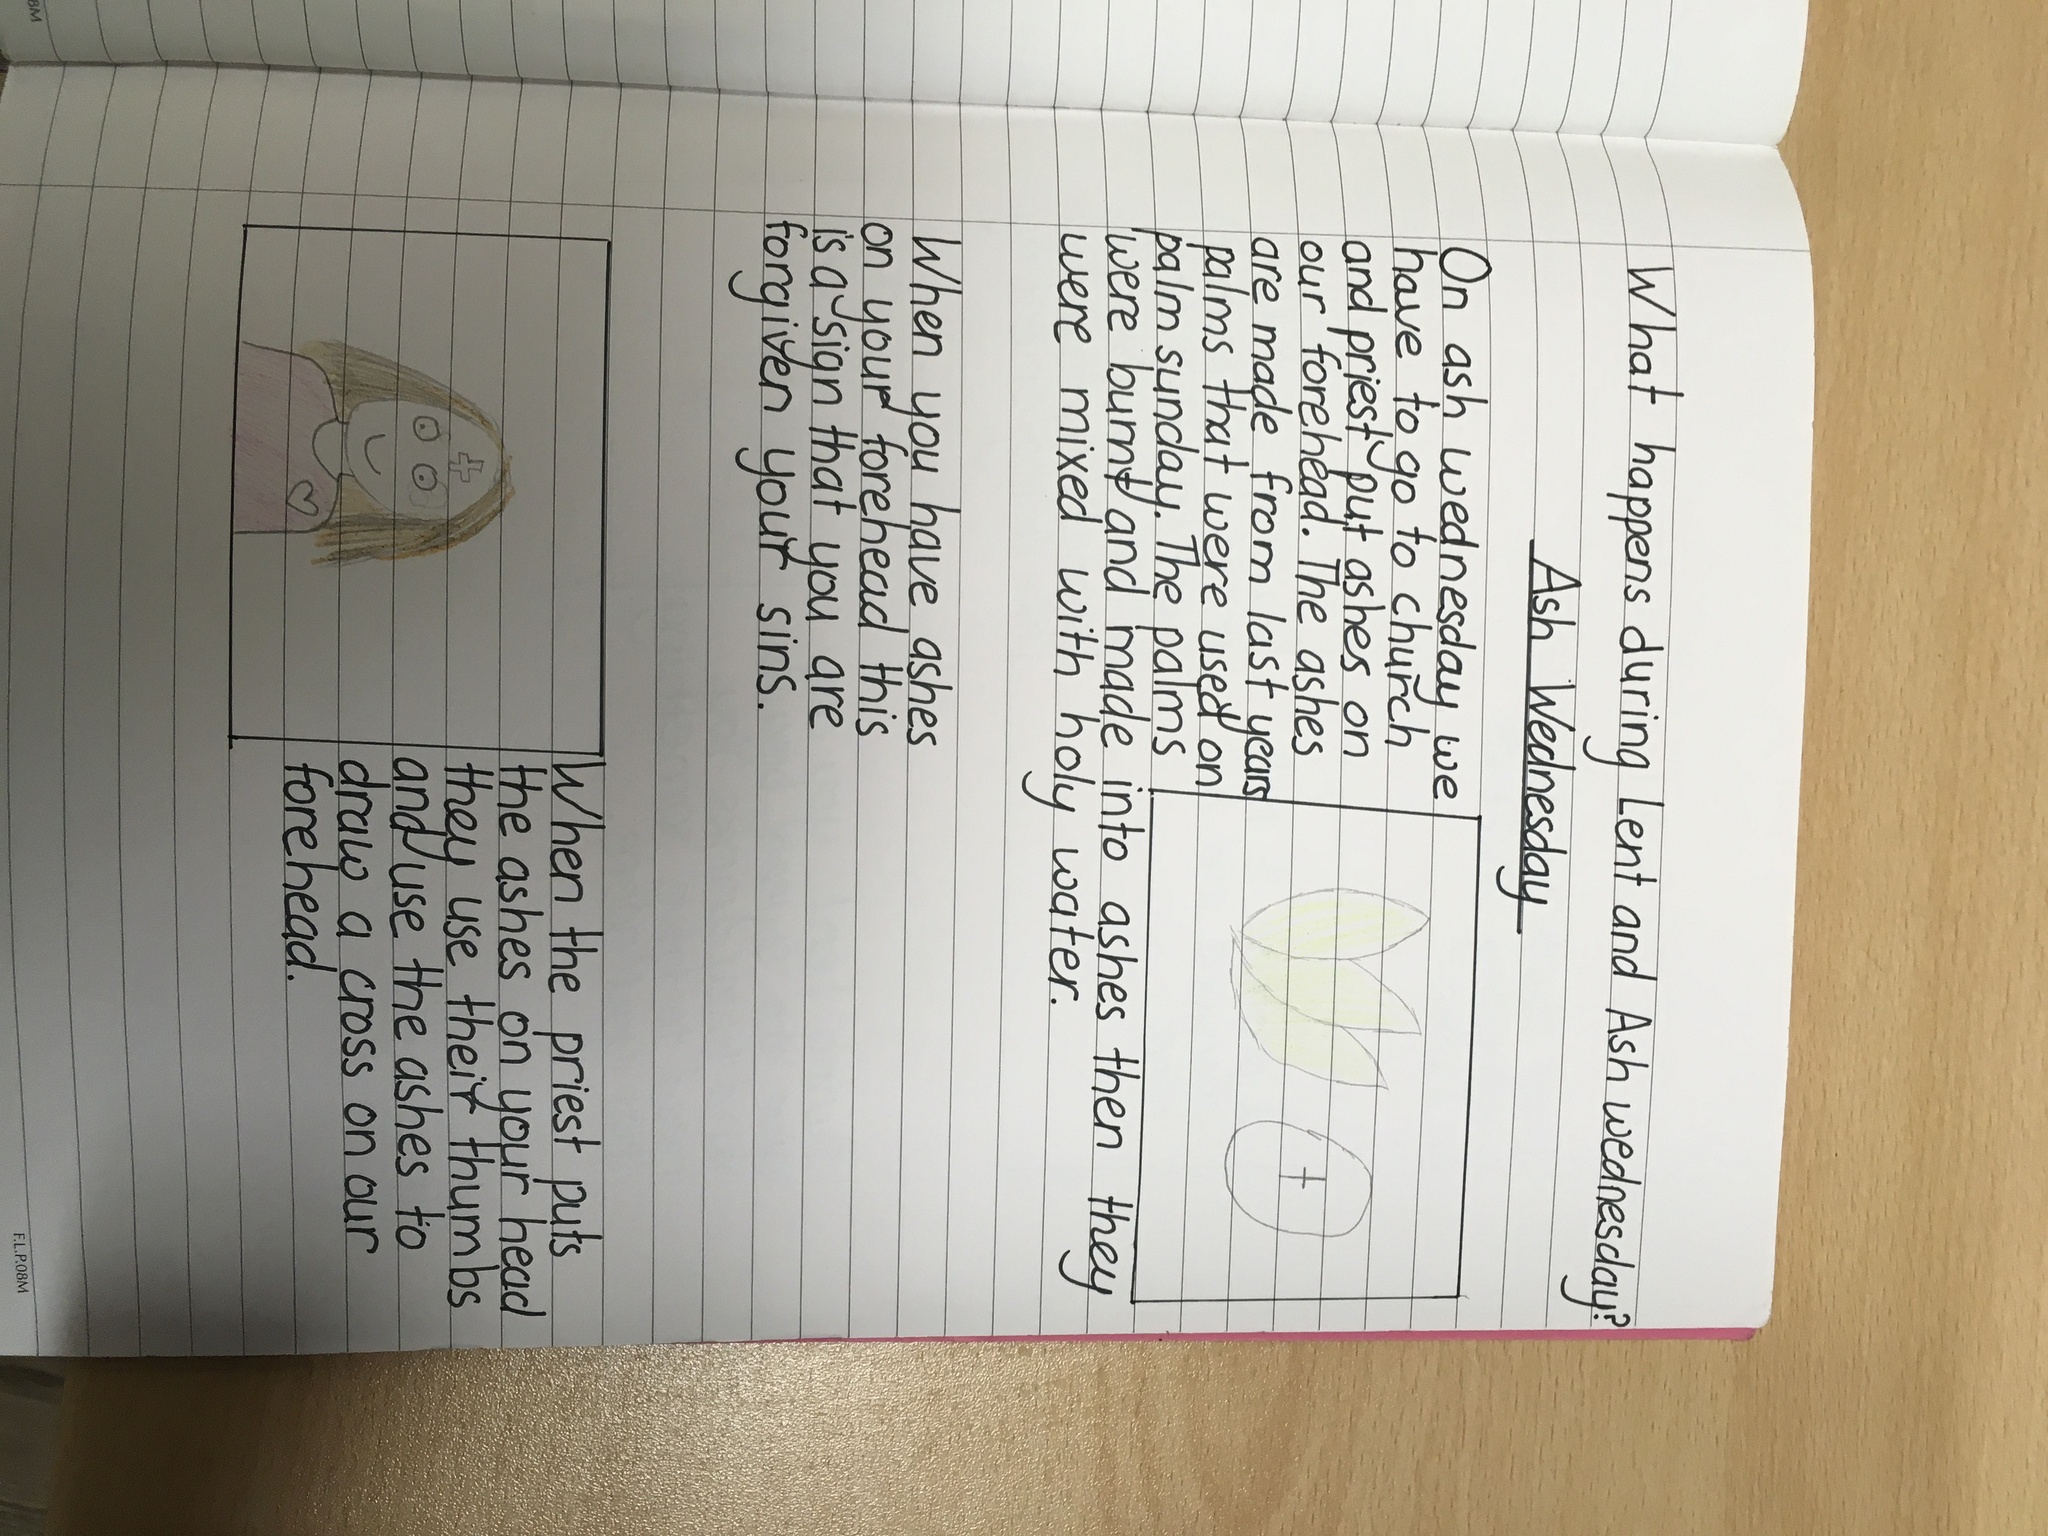 What happens during Lent and Ash wednesday?
Ash Wednesday
On ash wednesday we
have to go to church
and priest put ashes on
our forehead. The ashes
are made from last years
palms that were used on
palm sunday. The palms
were burnt and made into ashes then they
were mixed with holy water.
When you have ashes
on your forehead this
is a sign that you are
forgiven your sins.
When the priest puts
the ashes on your head
they use their thumbs
and use the ashes to
draw a cross on our
forehead.
F.L.P.08M
8M